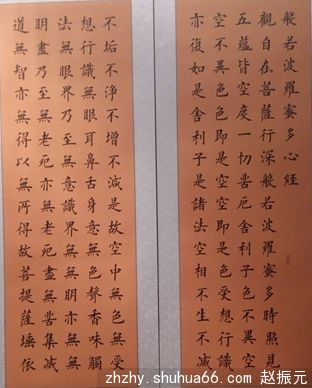 般若波羅蜜多心經
觀自在菩薩行深般若波羅蜜多時照見
五蘊皆空度一切苦厄舍利子色不異空
空不異色色即是空空即是色受想行識
亦復如是舍利子是諸法空相不生不滅
不垢不淨不增不減是故空中無色無受
想行識無眼耳鼻舌身意無色聲香味觸
法無眼界乃至無意識界無無明亦無無
明盡乃至無老死亦無老死盡無苦集滅
道無智亦無得以無所得故菩提薩埵依
zhzhy.shuhua66.com 赵振元